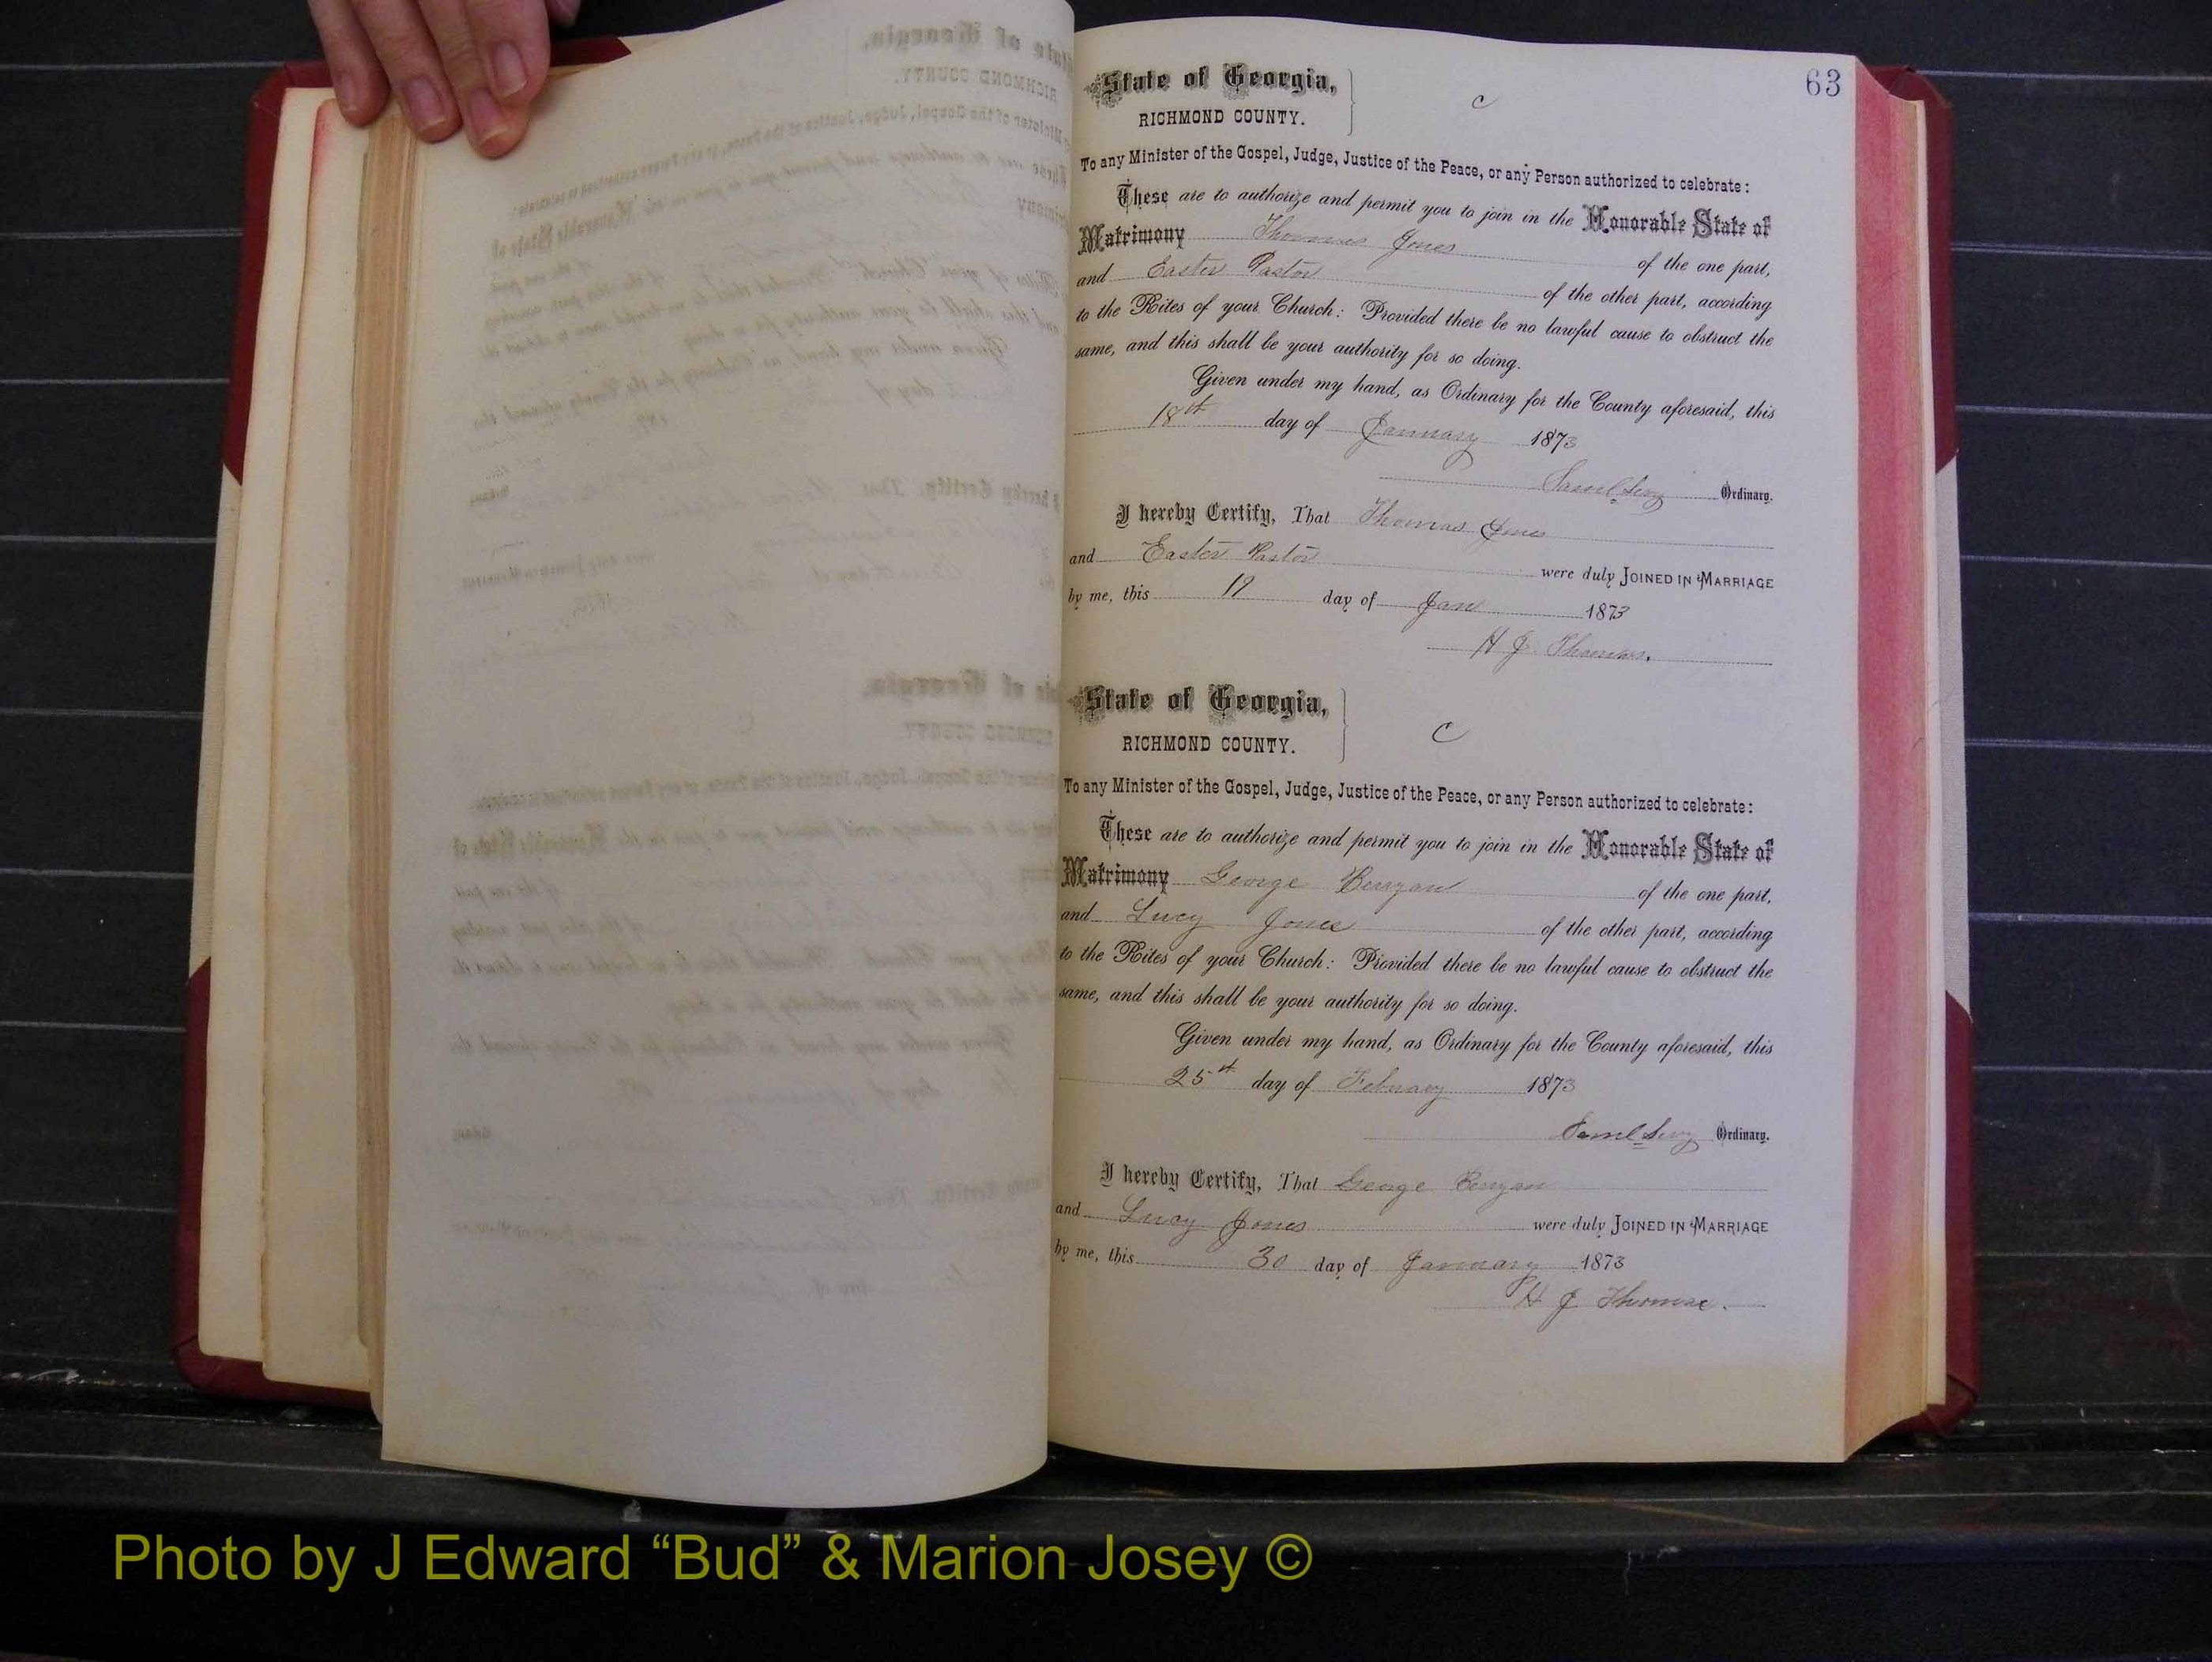 63
State of Georgia,
RICHMOND COUNTY.
C
To any Minister of the Gospel, Judge, Justice of the Peace, or any Person authorized to celebrate:
These are to authorize and permit you to join in the Honorable State of
Matrimony Thomas Jones of the one part,
and Easter Pastor of the other part, according
to the Rites of your Church: Provided there be no lawful cause to obstruct the
same, and this shall be your authority for so doing.
Given under my hand, as Ordinary for the County aforesaid, this
18th day of January 1873
Saml Levy Ordinary.
I hereby Certify, That Thomas Jones
and Easter Pastor were duly JOINED IN MARRIAGE
by me, this 19 day of Jan 1873
H J Thomas.
State of Georgia,
RICHMOND COUNTY.
C
To any Minister of the Gospel, Judge, Justice of the Peace, or any Person authorized to celebrate:
These are to authorize and permit you to join in the Honorable State of
Matrimony George of the one part,
and Lucy Jones of the other part, according
to the Rites of your Church: Provided there be no lawful cause to obstruct the
same, and this shall be your authority for so doing.
Given under my hand, as Ordinary for the County aforesaid, this
25th day of February 1873
Saml Levy Ordinary.
I hereby Certify, That George
and Lucy Jones were duly JOINED IN MARRIAGE
by me, this 30 day of January 1873
H J Thomas.
Photo by J Edward “Bud” & Marion Josey ©